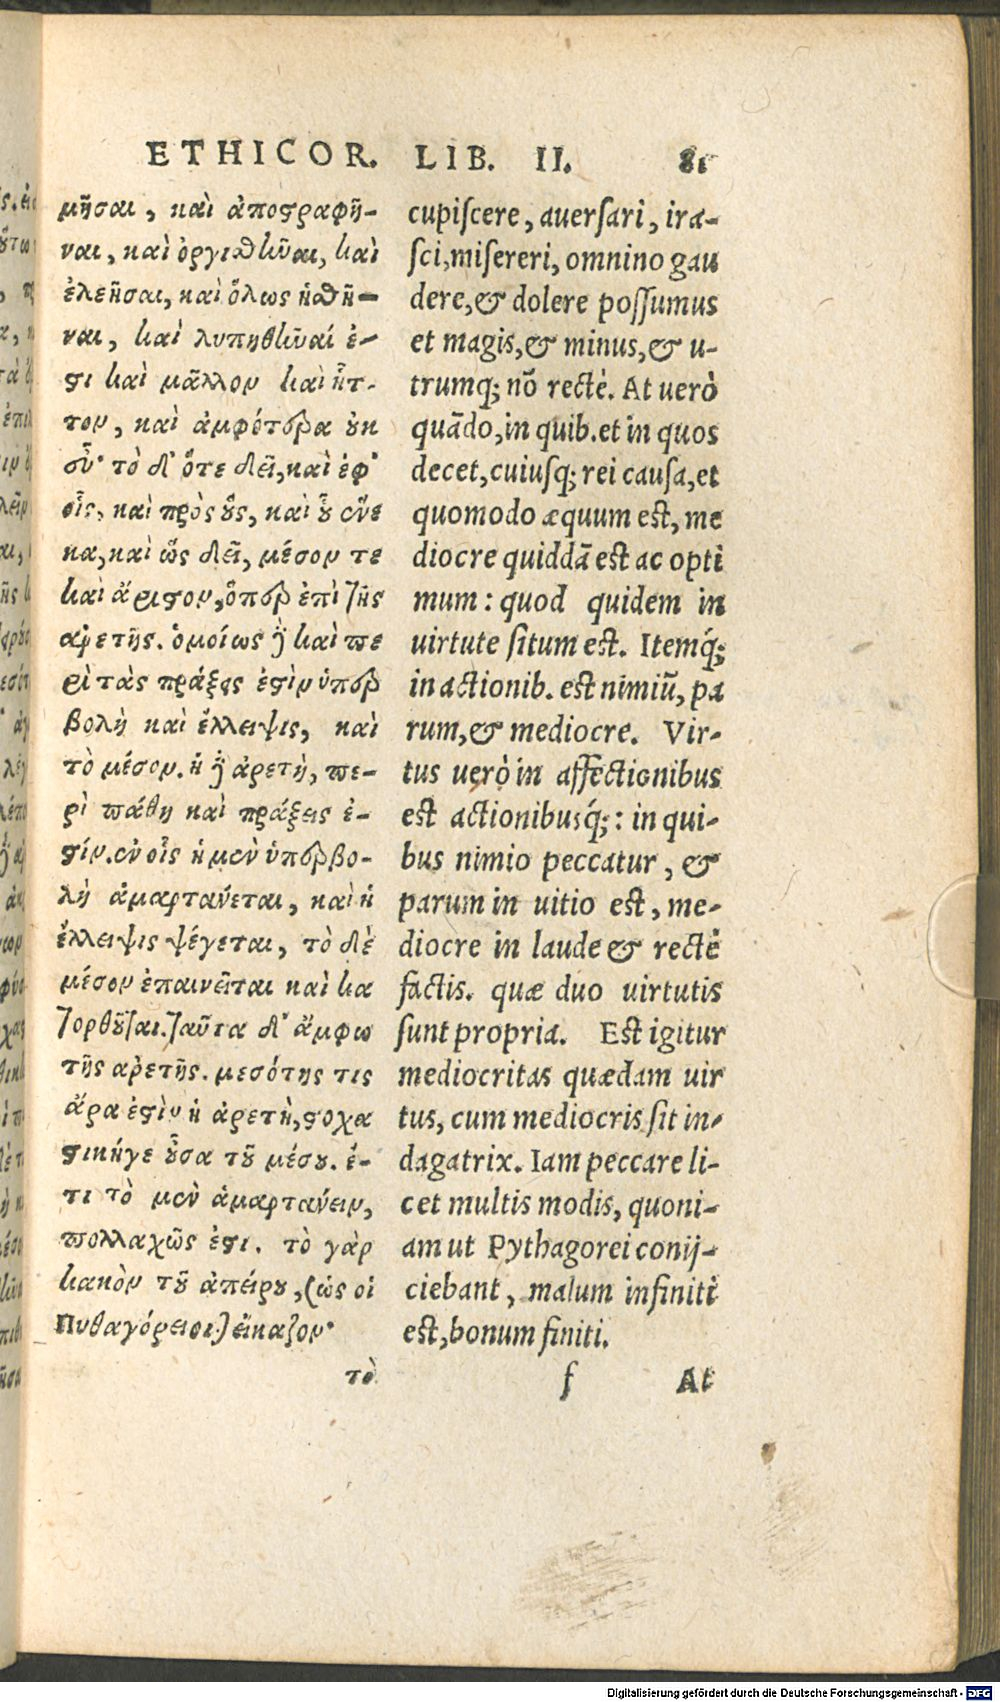 ETHICOR. LIB. II. 81
μῆσαι, καὶ ἀποστραφῆ-
ναι, καὶ ὀργισθῆναι, καὶ
ἐλεῆσαι, καὶ ὅλως ἡσθῆ-
ναι, καὶ λυπηθῆναί ἐ-
στι καὶ μᾶλλον καὶ ἧτ-
τον, καὶ ἀμφότερα οὐκ
εὖ· τὸ δ' ὅτε δεῖ, καὶ ἐφ'
οἷς, καὶ πρὸς οὓς, καὶ οὗ ἕνε
κα, καὶ ὡς δεῖ, μέσον τε
καὶ ἄριστον, ὅπερ ἐπὶ τῆς
ἀρετῆς. ὁμοίως δὲ καὶ πε
ρὶ τὰς πράξεις ἐστὶν ὑπερ
βολὴ καὶ ἔλλειψις, καὶ
τὸ μέσον. ἡ δὲ ἀρετὴ, πε-
ρὶ πάθη καὶ πράξεις ἐ-
στίν. ἐν οἷς ἡ μὲν ὑπερβο-
λὴ ἁμαρτάνεται, καὶ ἡ
ἔλλειψις ψέγεται, τὸ δὲ
μέσον ἐπαινεῖται καὶ κα
τορθοῦται. ταῦτα δ' ἄμφω
τῆς ἀρετῆς. μεσότης τις
ἄρα ἐστὶν ἡ ἀρετὴ, στοχα
στική γε οὖσα τοῦ μέσου. ἔ-
τι τὸ μὲν ἁμαρτάνειν,
πολλαχῶς ἐστι. τὸ γὰρ
κακὸν τοῦ ἀπείρου, (ὡς οἱ
Πυθαγόρειοι) εἴκαζον·
τὸ
cupiſcere, auerſari, ira-
ſci, miſereri, omnino gau
dere, & dolere poſſumus
et magis, & minus, & u-
trumq; nõ rectè. At uerò
quãdo, in quib. et in quos
decet, cuiuſq; rei cauſa, et
quomodo æquum eſt, me
diocre quiddã eſt ac opti
mum: quod quidem in
uirtute ſitum eſt. Itemq́;
in actionib. eſt nimiũ, pa
rum, & mediocre. Vir-
tus uerò in affectionibus
eſt actionibusq́;: in qui-
bus nimio peccatur, &
parum in uitio eſt, me-
diocre in laude & rectè
factis. quæ duo uirtutis
ſunt propria. Eſt igitur
mediocritas quædam uir
tus, cum mediocris ſit in-
dagatrix. Iam peccare li-
cet multis modis, quoni-
am ut Pythagorei conij-
ciebant, malum infiniti
eſt, bonum finiti.
f At
Digitalisierung gefördert durch die Deutsche Forschungsgemeinschaft - DFG